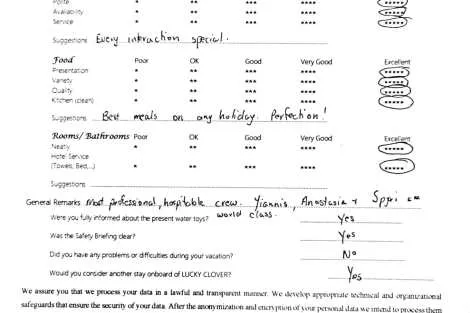 Polite
Availability * ** *** **** *****
Service * ** *** **** *****
Suggestions Every interaction special.
Food Poor OK Good Very Good Excellent
Presentation * ** *** **** *****
Variety * ** *** **** *****
Quality * ** *** **** *****
Kitchen (clean) * ** *** **** *****
Suggestions Best meals on any holiday. Perfection!
Rooms/ Bathrooms Poor OK Good Very Good Excellent
Neatly * ** *** **** *****
Hotel Service
(Towels, Bed,..) * ** *** **** *****
Suggestions
General Remarks Most professional, hospitable crew. Yiannis, Anastasia +
world class.
Were you fully informed about the present water toys? Yes
Was the Safety Briefing clear? Yes
Did you have any problems or difficulties during your vacation? No
Would you consider another stay onboard of LUCKY CLOVER? Yes
We assure you that we process your data in a lawful and transparent manner. We develop appropriate technical and organizational
safeguards that ensure the security of your data. After the anonymization and encryption of your personal data we intend to process them